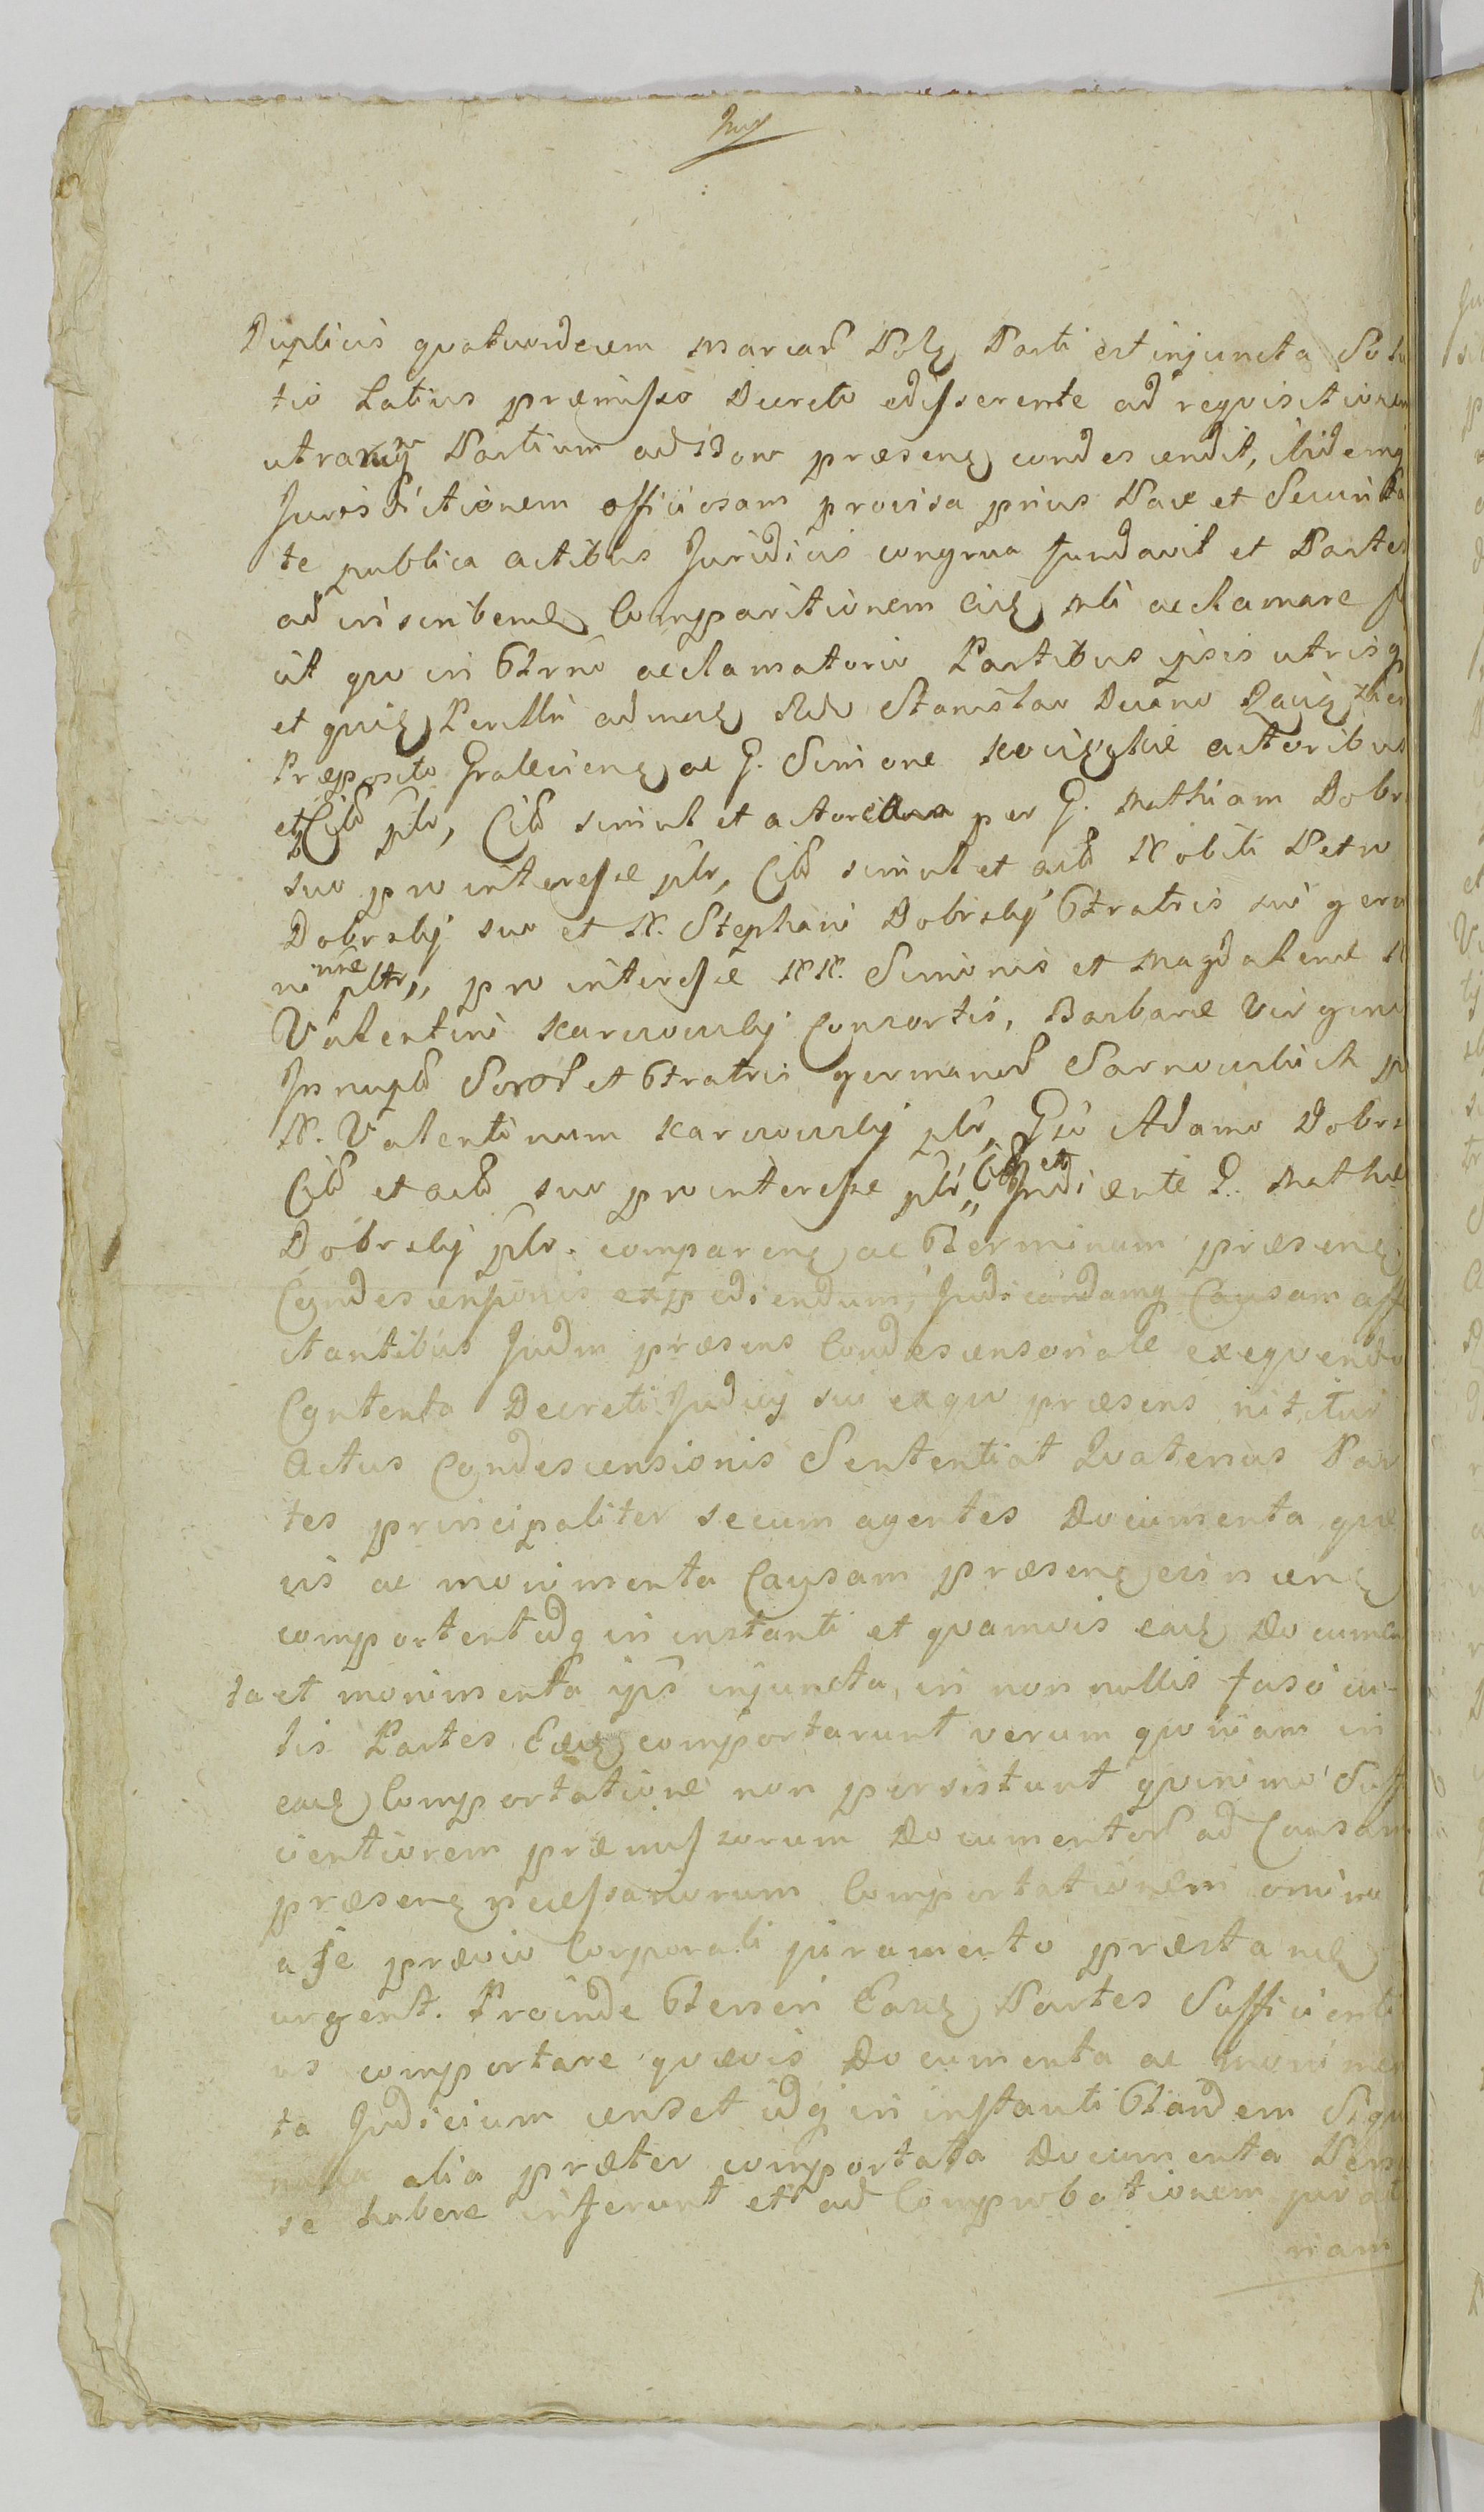 Duplicis quatuordecem marcar Pol Parti est injuncta Solu
tio Latius præmisso Decreto edisserente ad requisitionem
utrarumq Partium ad Bona præsen condescendit, ibidemq
Jurisdictionem officiosam provisa prius Pace et Securita
te publica actibus Juridicis congrua fundavit et Partes
ad inscribend Comparitionem acclamare f
it quo in Trno acclamatorio Partibus ipsis utrisq
et Perillri admod Rndo Stanislao
Præposito ac G. Simone actoribus
et Citt ptr, Citt simul et actoribus per G. Mathiam Dobr
suo pro interesse ptr, Citt simul et actt Nobili Petro
Dobrski suo et N. Stephani Dobrskij Fratris sui germ
ni nne ptr,, pro interesse NN. Simonis et Magdalenæ N
Valentini Karwowskij Consortis, Barbaræ Virgin
Innupt Soror et Fratris german Sarnowskich p
N. Valentinum Karwowskij ptr, Gso Adamo Dobrs
Citt et actt suo pro interesse ptr,, Citt et Judiciente G. Mathi
Dobrskij ptr. comparen ac Terminum præsen
Condescensionis expediendum, Judicandamq Causam affe
ctantibus Judm præsens Condescensoriale exequendo
Contenta Decreti Judicij sui exquo præsens nititur
Actus Condescensionis Sententiat Quatenus Par
tes principaliter secum agentes Documenta quæ
vis ac monimenta Causam præsen concernen
comportent idq in instanti et quamvis ead Documen
ta et monimenta ips injuncta, in nonnullis fascicu-
lis Partes Eæd comportarunt verum quoniam in
ead Comportatione non persistunt quinimo Suff
icientiorem præmissorum Documentor ad Causam
præsen necessariorum Comportationem omnino
a se prævio Corporali juramento præstand
urgent. Proinde Teneri Easd Partes Sufficienti
us comportare quævis Documenta ac monimen
ta Judicium censet idq in instanti Tandem Siqu
alia præter comportata Documenta Penes
se habere inferunt et ad Comprobationem jura
niam